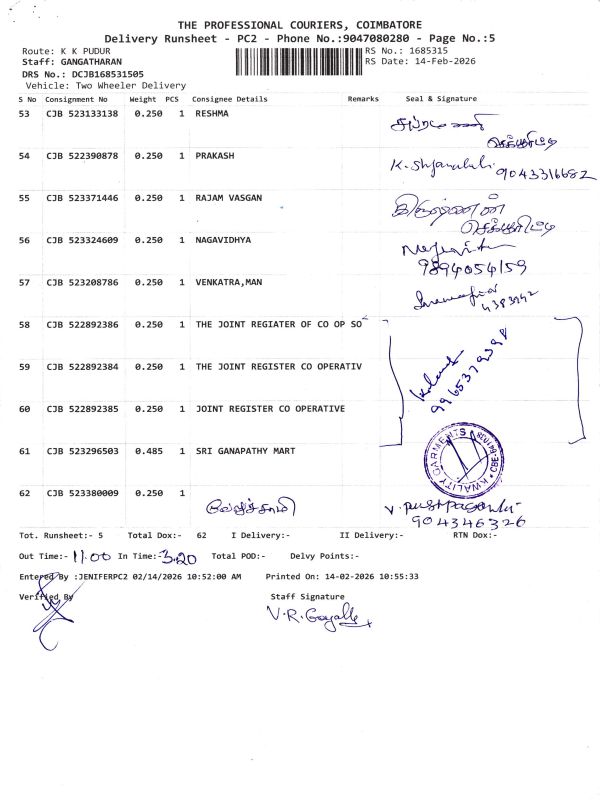 THE PROFESSIONAL COURIERS, COIMBATORE
Delivery Runsheet - PC2 - Phone No.:9047080280 - Page No.:5
Route: K K PUDUR RS No.: 1685315
Staff: GANGATHARAN RS Date: 14-Feb-2026
DRS No.: DCJB168531505
Vehicle: Two Wheeler Delivery
S No Consignment No Weight PCS Consignee Details Remarks Seal & Signature
53 CJB 523133138 0.250 1 RESHMA
54 CJB 522390878 0.250 1 PRAKASH
9043316682
55 CJB 523371446 0.250 1 RAJAM VASGAN
56 CJB 523324609 0.250 1 NAGAVIDHYA
9894054159
57 CJB 523208786 0.250 1 VENKATRA,MAN
58 CJB 522892386 0.250 1 THE JOINT REGIATER OF CO OP SO
59 CJB 522892384 0.250 1 THE JOINT REGISTER CO OPERATIV
60 CJB 522892385 0.250 1 JOINT REGISTER CO OPERATIVE
61 CJB 523296503 0.485 1 SRI GANAPATHY MART
KWALITY GARMENTS
62 CJB 523380009 0.250 1
904346326
Tot. Runsheet:- 5 Total Dox:- 62 I Delivery:- II Delivery:- RTN Dox:-
Out Time:- 11.00 In Time:- 3.20 Total POD:- Delvy Points:-
Entered By :JENIFERPC2 02/14/2026 10:52:00 AM Printed On: 14-02-2026 10:55:33
Verified By Staff Signature